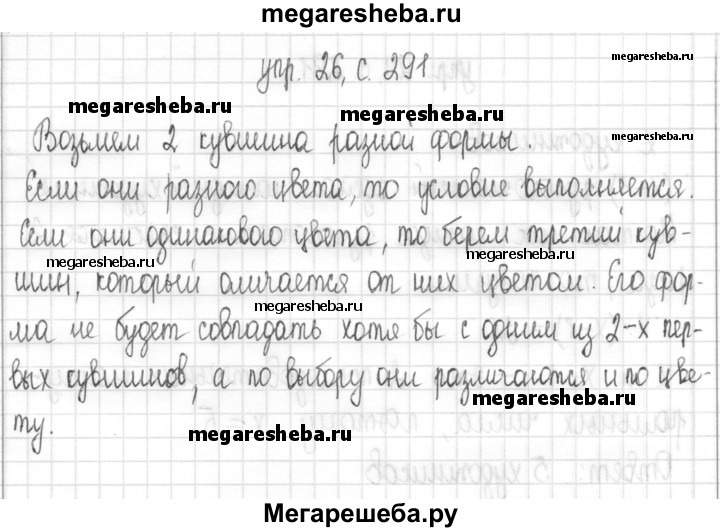 megaresheba.ru
упр. 26, с. 291
megaresheba.ru
megaresheba.ru
megaresheba.ru
Возьмем 2 кувшина разной формы.
megaresheba.ru
Если они разного цвета, то условие выполняется.
Если они одинакового цвета, то берем третий кув-
megaresheba.ru
megaresheba.ru
шин, который отличается от них цветом. Его фор-
megaresheba.ru
ма не будет совпадать хотя бы с одним из 2-х пер-
вых кувшинов, а по выбору они различаются и по цве-
megaresheba.ru
ту.
megaresheba.ru
Ответ: 5 художников
Мегарешеба.ру